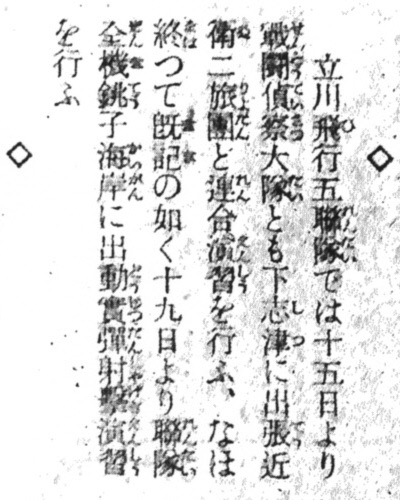 立川飛行五聯隊では十五日より
戰鬪偵察大隊とも下志津に出張近
衛二旅團と連合演習を行ふ、なほ
終つて既記の如く十九日より聯隊
全機銚子海岸に出動實彈射擊演習
を行ふ